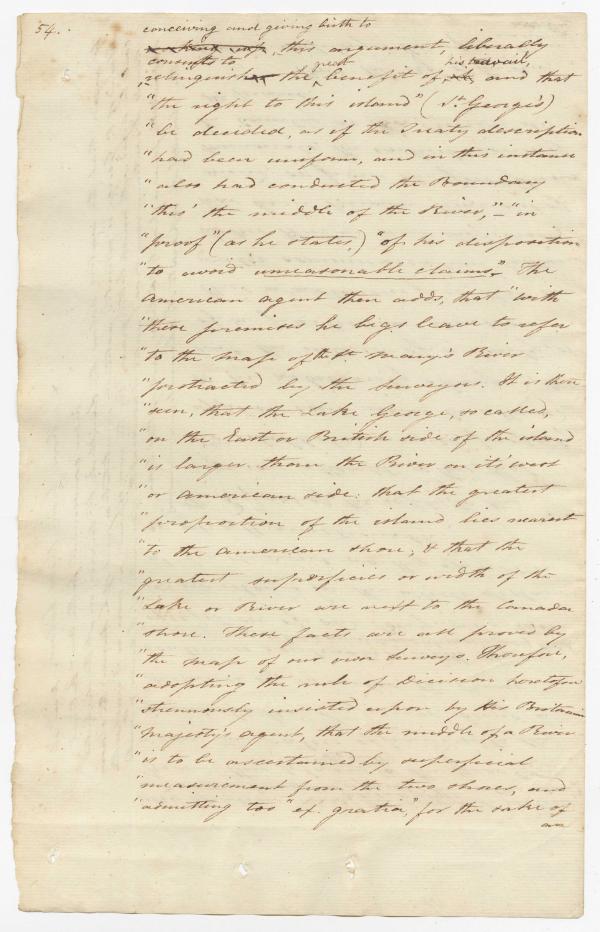 54.
conceiving and giving birth to
this argument, liberally
consents to great his travail,
relinquish the benefit of and that
"the right to this island" (St. George's)
"be decided, as if the Treaty description
"had been uniform, and in this instance
"also had conducted the Boundary
"thro' the middle of the River,"-"in
"proof" (as he states,) "of his disposition
"to avoid unreasonable claims." The
American agent then adds, that "with
"these premises he begs leave to refer
"to the map of the St Mary's River
"protracted by the Surveyors. It is there
"seen, that the Lake George, so called,
"on the East or British side of the island
"is larger than the River on it's west
"or American side: that the greatest
"proportion of the island lies nearest
"to the American shore; & that the
"greatest superficies or width of the
"Lake or River are next to the Canada
"shore. These facts are all proved by
"the map of our own Surveys. Therefore,
"adopting the rule of Decision heretofore
"strenuously insisted upon by His Britannic
"Majesty's agent, that the middle of a River
"is to be ascertained by superficial
"measurement from the two shores, and
"admitting too "ex gratia" for the sake of
an